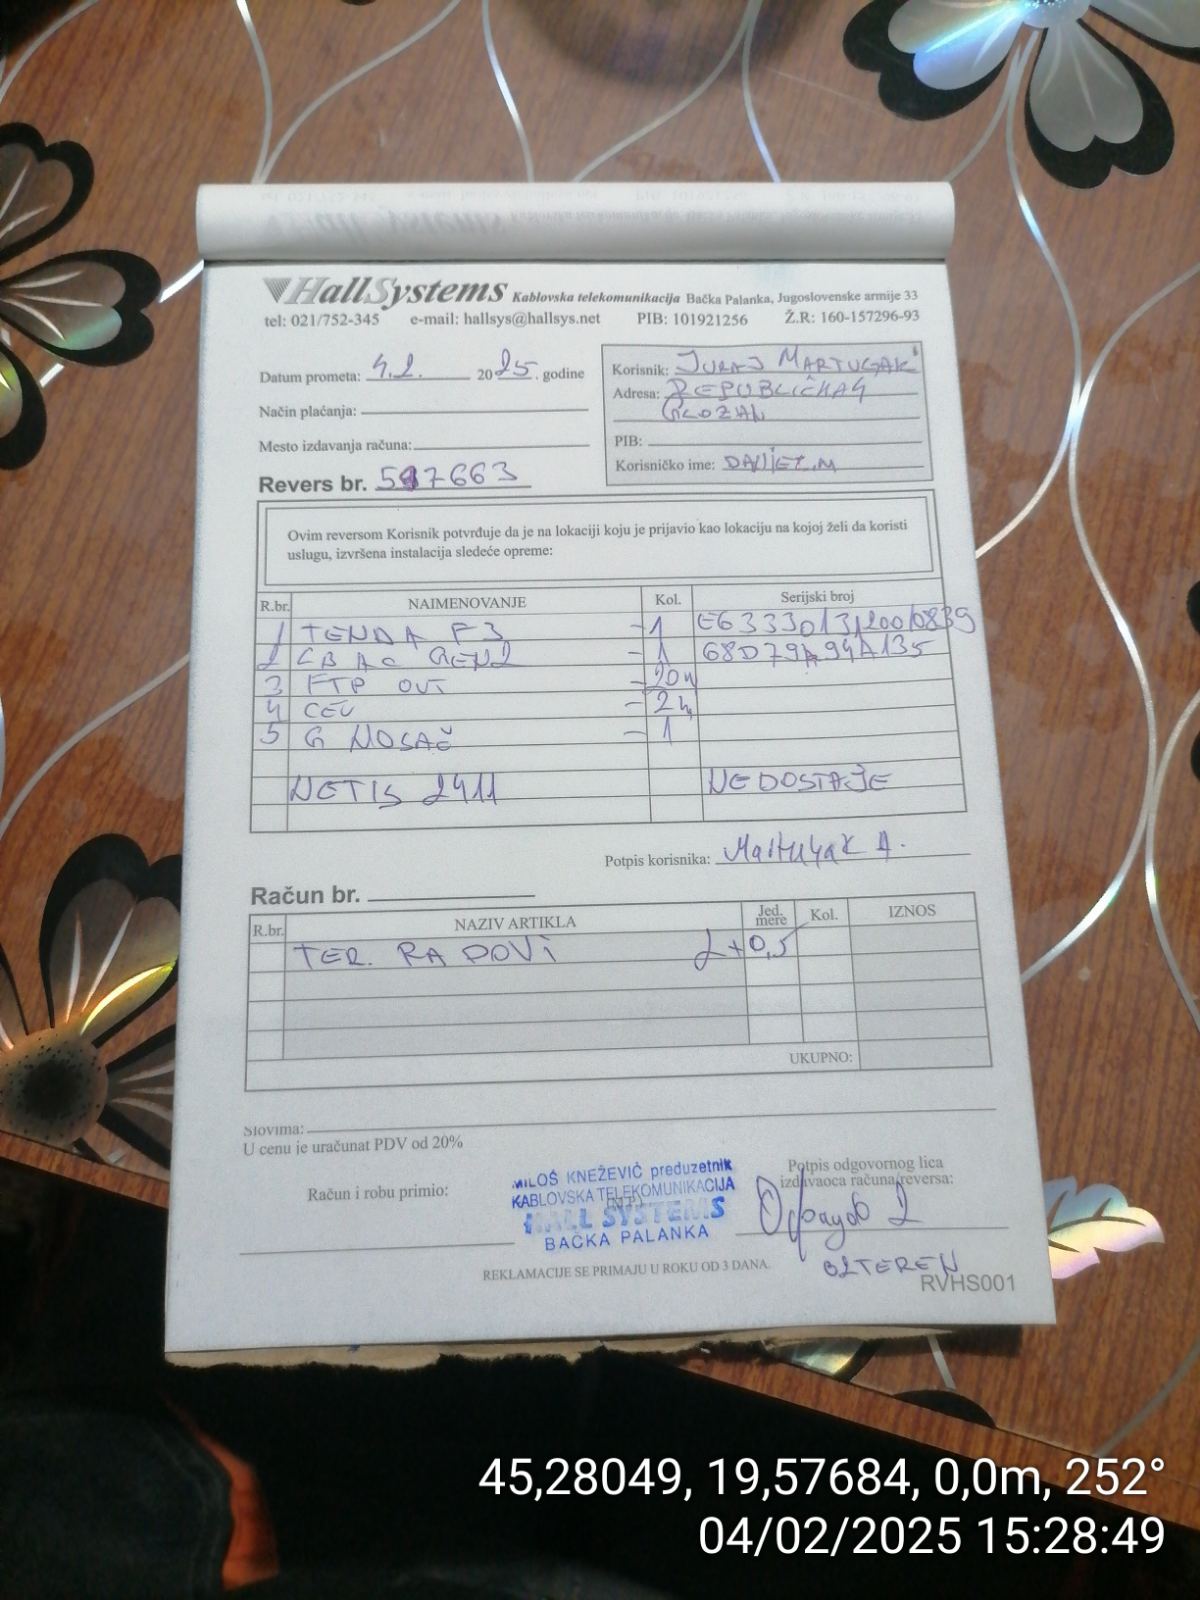 HallSystems Kablovska telekomunikacija Bačka Palanka, Jugoslovenske armije 33
tel: 021/752-345 e-mail: hallsys@hallsys.net PIB: 101921256 Ž.R: 160-157296-93
Datum prometa: 4.2. 2025. godine
Način plaćanja:
Mesto izdavanja računa:
Revers br. 597663
Korisnik: JURAJ MARTUGAK
Adresa: REPUBLIČKA 4
GLOZAN
PIB:
Korisničko ime: DANIJEL.M
Ovim reversom Korisnik potvrđuje da je na lokaciji koju je prijavio kao lokaciju na kojoj želi da koristi
uslugu, izvršena instalacija sledeće opreme:
R.br. NAIMENOVANJE Kol. Serijski broj
1 TENDA F3 -1 E6333013120010839
2 LB AC GEN2 -1 68D79A94A135
3 FTP OUT -20m
4 CEV -2m
5 G NOSAČ -1
NETIS 2411 NEDOSTAJE
Potpis korisnika: Martugak A.
Račun br.
R.br. NAZIV ARTIKLA Jed. mere Kol. IZNOS
TER. RADOVI 2+0,5
UKUPNO:
Slovima:
U cenu je uračunat PDV od 20%
Račun i robu primio:
MILOŠ KNEŽEVIĆ preduzetnik
KABLOVSKA TELEKOMUNIKACIJA
HALL SYSTEMS
BAČKA PALANKA
Potpis odgovornog lica
izdavaoca računa/reversa:
REKLAMACIJE SE PRIMAJU U ROKU OD 3 DANA.
02TEREN
RVHS001
45,28049, 19,57684, 0,0m, 252°
04/02/2025 15:28:49